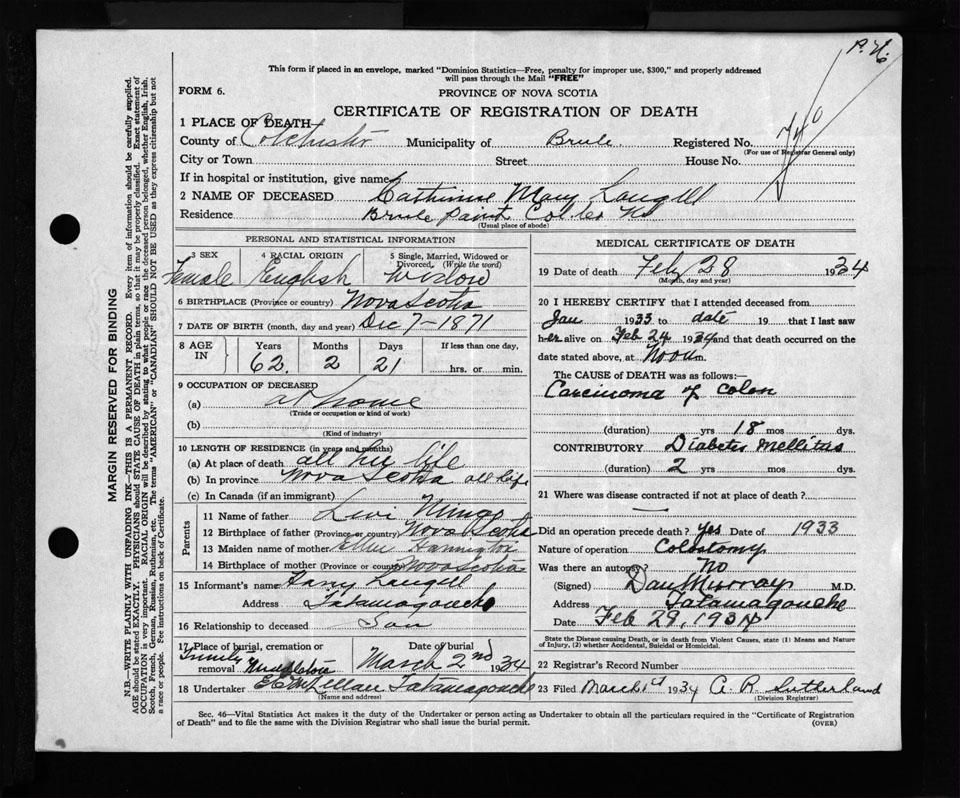 P. N.
This form if placed in an envelope, marked "Dominion Statistics—Free, penalty for improper use, $300," and properly addressed
will pass through the Mail "FREE"
FORM 6.
PROVINCE OF NOVA SCOTIA
CERTIFICATE OF REGISTRATION OF DEATH
1 PLACE OF DEATH
County of Colchester Municipality of Brule. Registered No. 740
(For use of Registrar General only)
City or Town Street House No.
If in hospital or institution, give name
2 NAME OF DECEASED Catherine Mary Langill
Residence Brule Point Col. Co. NS
(Usual place of abode)
PERSONAL AND STATISTICAL INFORMATION
3 SEX 4 RACIAL ORIGIN 5 Single, Married, Widowed or Divorced. (Write the word)
Female English Widow
6 BIRTHPLACE (Province or country) Nova Scotia
7 DATE OF BIRTH (month, day and year) Dec 7–1871
8 AGE IN Years Months Days If less than one day,
62. 2 21 hrs. or min.
9 OCCUPATION OF DECEASED
(a) at home
(Trade or occupation or kind of work)
(b)
(Kind of industry)
10 LENGTH OF RESIDENCE (in years and months)
(a) At place of death all her life
(b) In province Nova Scotia all life
(c) In Canada (if an immigrant)
Parents
11 Name of father Levi Mingo
12 Birthplace of father (Province or country) Nova Scotia
13 Maiden name of mother
14 Birthplace of mother (Province or country) Nova Scotia
15 Informant's name Harry Langill
Address Tatamagouche
16 Relationship to deceased Son
17 Place of burial, cremation or removal Date of burial
Trinity March 2nd 1934
18 Undertaker Tatamagouche
(Name and address)
MEDICAL CERTIFICATE OF DEATH
19 Date of death Feb 28 1934
(Month, day and year)
20 I HEREBY CERTIFY that I attended deceased from
Jan 1933 to date 19 that I last saw
her alive on Feb 24 1934 and that death occurred on the
date stated above, at Noon m.
The CAUSE OF DEATH was as follows:—
Carcinoma of colon
(duration) yrs 18 mos dys.
CONTRIBUTORY Diabetes Mellitus
(duration) 2 yrs mos dys.
21 Where was disease contracted if not at place of death?
Did an operation precede death? Yes Date of 1933
Nature of operation Colostomy
Was there an autopsy? No
(Signed) Dan Murray M.D.
Address Tatamagouche
Date Feb 28, 1934
State the Disease causing Death, or in death from Violent Causes, state (1) Means and Nature
of Injury, (2) whether Accidental, Suicidal or Homicidal.
22 Registrar's Record Number
23 Filed March 1st 1934 A. R. Sutherland
(Division Registrar)
Sec. 46—Vital Statistics Act makes it the duty of the Undertaker or person acting as Undertaker to obtain all the particulars required in the "Certificate of Registration
of Death" and to file the same with the Division Registrar who shall issue the burial permit.
(OVER)
MARGIN RESERVED FOR BINDING
N.B.—WRITE PLAINLY WITH UNFADING INK—THIS IS A PERMANENT RECORD. Every item of information should be carefully supplied.
AGE should be stated EXACTLY. PHYSICIANS should STATE CAUSE OF DEATH in plain terms, so that it may be properly classified. Exact statement of
OCCUPATION is very important. RACIAL ORIGIN will be described by stating to what people or race the deceased person belonged, whether English, Irish,
Scotch, French, German, Russian, Ruthenian, etc. The terms "AMERICAN" or "CANADIAN" SHOULD NOT BE USED as they express citizenship but not
a race or people. See instructions on back of Certificate.